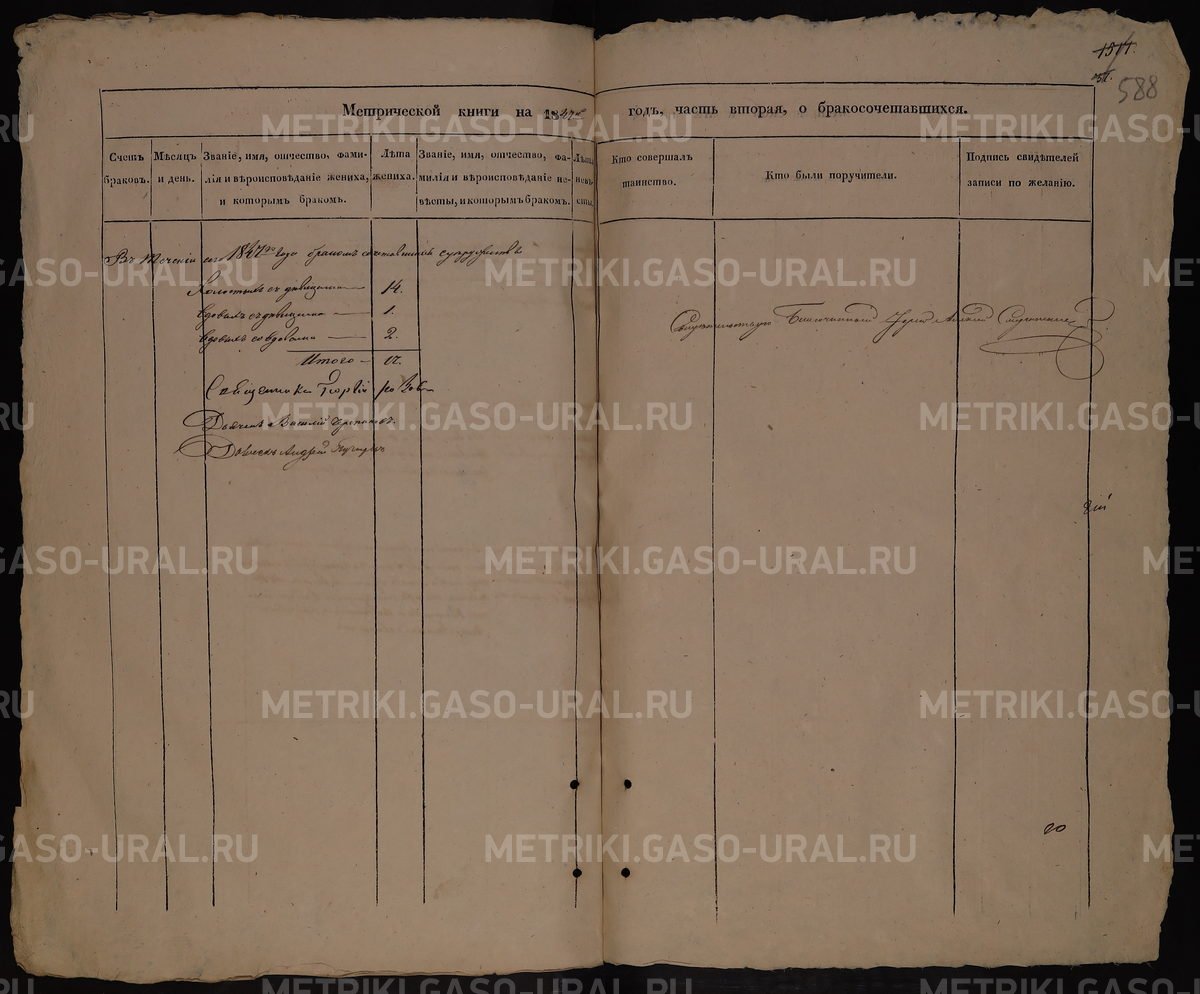 1517.
588
Метрической книги на 1847й годъ, часть вторая, о бракосочетавшихся.
Счетъ браковъ.
Мѣсяцъ и день.
Званіе, имя, отчество, фами-
лія и вѣроисповѣданіе жениха,
и которымъ бракомъ.
Лѣта
жениха.
Званіе, имя, отчество, фа-
милія и вѣроисповѣданіе не-
вѣсты, и которымъ бракомъ.
Лѣта
невѣ-
сты.
Кто совершалъ
таинство.
Кто были поручители.
Подпись свидѣтелей
записи по желанію.
Въ теченіи сего 1847го года бракомъ сочетавшихся супружествъ
Холостыхъ съ дѣвицами — 14.
Вдовыхъ съ дѣвицами — 1.
Вдовыхъ со вдовами — 2.
Итого — 17.
Священникъ Георгій
Дьячекъ Василій
Андрей
Свидѣтельствую Благочинный
METRIKI.GASO-URAL.RU